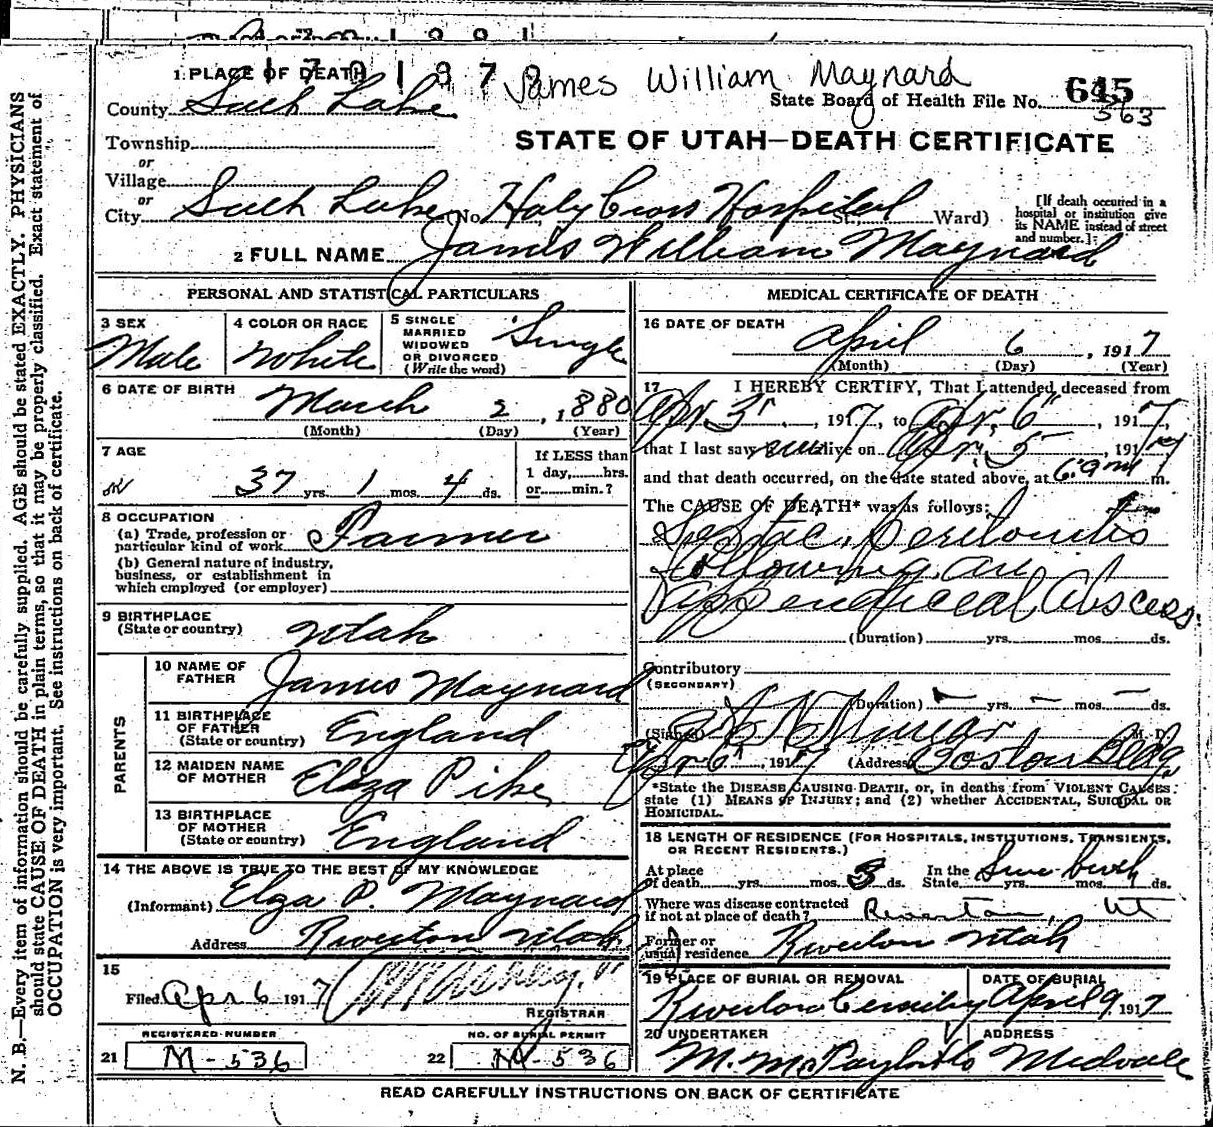 N. B.—Every item of information should be carefully supplied. AGE should be stated EXACTLY. PHYSICIANS
should state CAUSE OF DEATH in plain terms, so that it may be properly classified. Exact statement of
OCCUPATION is very important. See instructions on back of certificate.
James William Maynard
1 PLACE OF DEATH
County Salt Lake
State Board of Health File No. 645
563
STATE OF UTAH—DEATH CERTIFICATE
Township
or
Village
or
City Salt Lake (No. Holy Cross Hospital St.; Ward)
[If death occurred in a
hospital or institution give
its NAME instead of street
and number.]
2 FULL NAME James William Maynard
PERSONAL AND STATISTICAL PARTICULARS
3 SEX
Male
4 COLOR OR RACE
White
5 SINGLE
MARRIED
WIDOWED
OR DIVORCED
(Write the word)
Single
6 DATE OF BIRTH
March 2, 1880
(Month) (Day) (Year)
7 AGE
37 yrs. 1 mos. 4 ds.
If LESS than
1 day, hrs.
or min.?
8 OCCUPATION
(a) Trade, profession or
particular kind of work Farmer
(b) General nature of industry,
business, or establishment in
which employed (or employer)
9 BIRTHPLACE
(State or country) Utah
PARENTS
10 NAME OF
FATHER James Maynard
11 BIRTHPLACE
OF FATHER
(State or country) England
12 MAIDEN NAME
OF MOTHER Eliza Pike
13 BIRTHPLACE
OF MOTHER
(State or country) England
14 THE ABOVE IS TRUE TO THE BEST OF MY KNOWLEDGE
(Informant) Eliza P. Maynard
Address Riverton Utah
15
Filed Apr 6 1917
REGISTRAR
REGISTERED NUMBER
21 M-536
NO. OF BURIAL PERMIT
22 M-536
MEDICAL CERTIFICATE OF DEATH
16 DATE OF DEATH
April 6, 1917
(Month) (Day) (Year)
17 I HEREBY CERTIFY, That I attended deceased from
Apr 3, 1917, to Apr. 6, 1917,
that I last saw him alive on Apr 5, 1917
and that death occurred, on the date stated above, at 6 a m.
The CAUSE OF DEATH* was as follows:
Septic Peritonitis
following an
Appendiceal Abscess
(Duration) yrs. mos. ds.
Contributory
(SECONDARY)
(Duration) — yrs. — mos. — ds.
(Signed) M. D.
Apr 6, 1917 (Address) Boston Bldg.
*State the DISEASE CAUSING DEATH, or, in deaths from VIOLENT CAUSES,
state (1) MEANS OF INJURY; and (2) whether ACCIDENTAL, SUICIDAL OR
HOMICIDAL.
18 LENGTH OF RESIDENCE (FOR HOSPITALS, INSTITUTIONS, TRANSIENTS,
OR RECENT RESIDENTS.)
At place
of death yrs. mos. 3 ds.
In the
State Since birth yrs. mos. ds.
Where was disease contracted
if not at place of death? Riverton, Ut
Former or
usual residence Riverton Utah
19 PLACE OF BURIAL OR REMOVAL
Riverton Cemetery
DATE OF BURIAL
April 9 1917
20 UNDERTAKER
ADDRESS
Midvale
READ CAREFULLY INSTRUCTIONS ON BACK OF CERTIFICATE